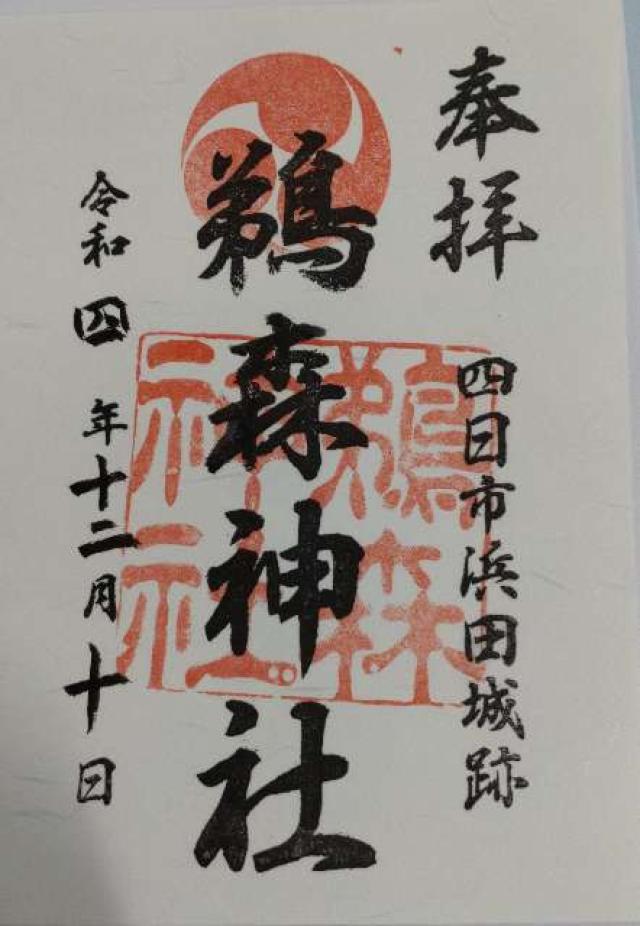 奉拝
四日市浜田城跡
鵜森神社
鵜森
神社
令和四年十二月十日